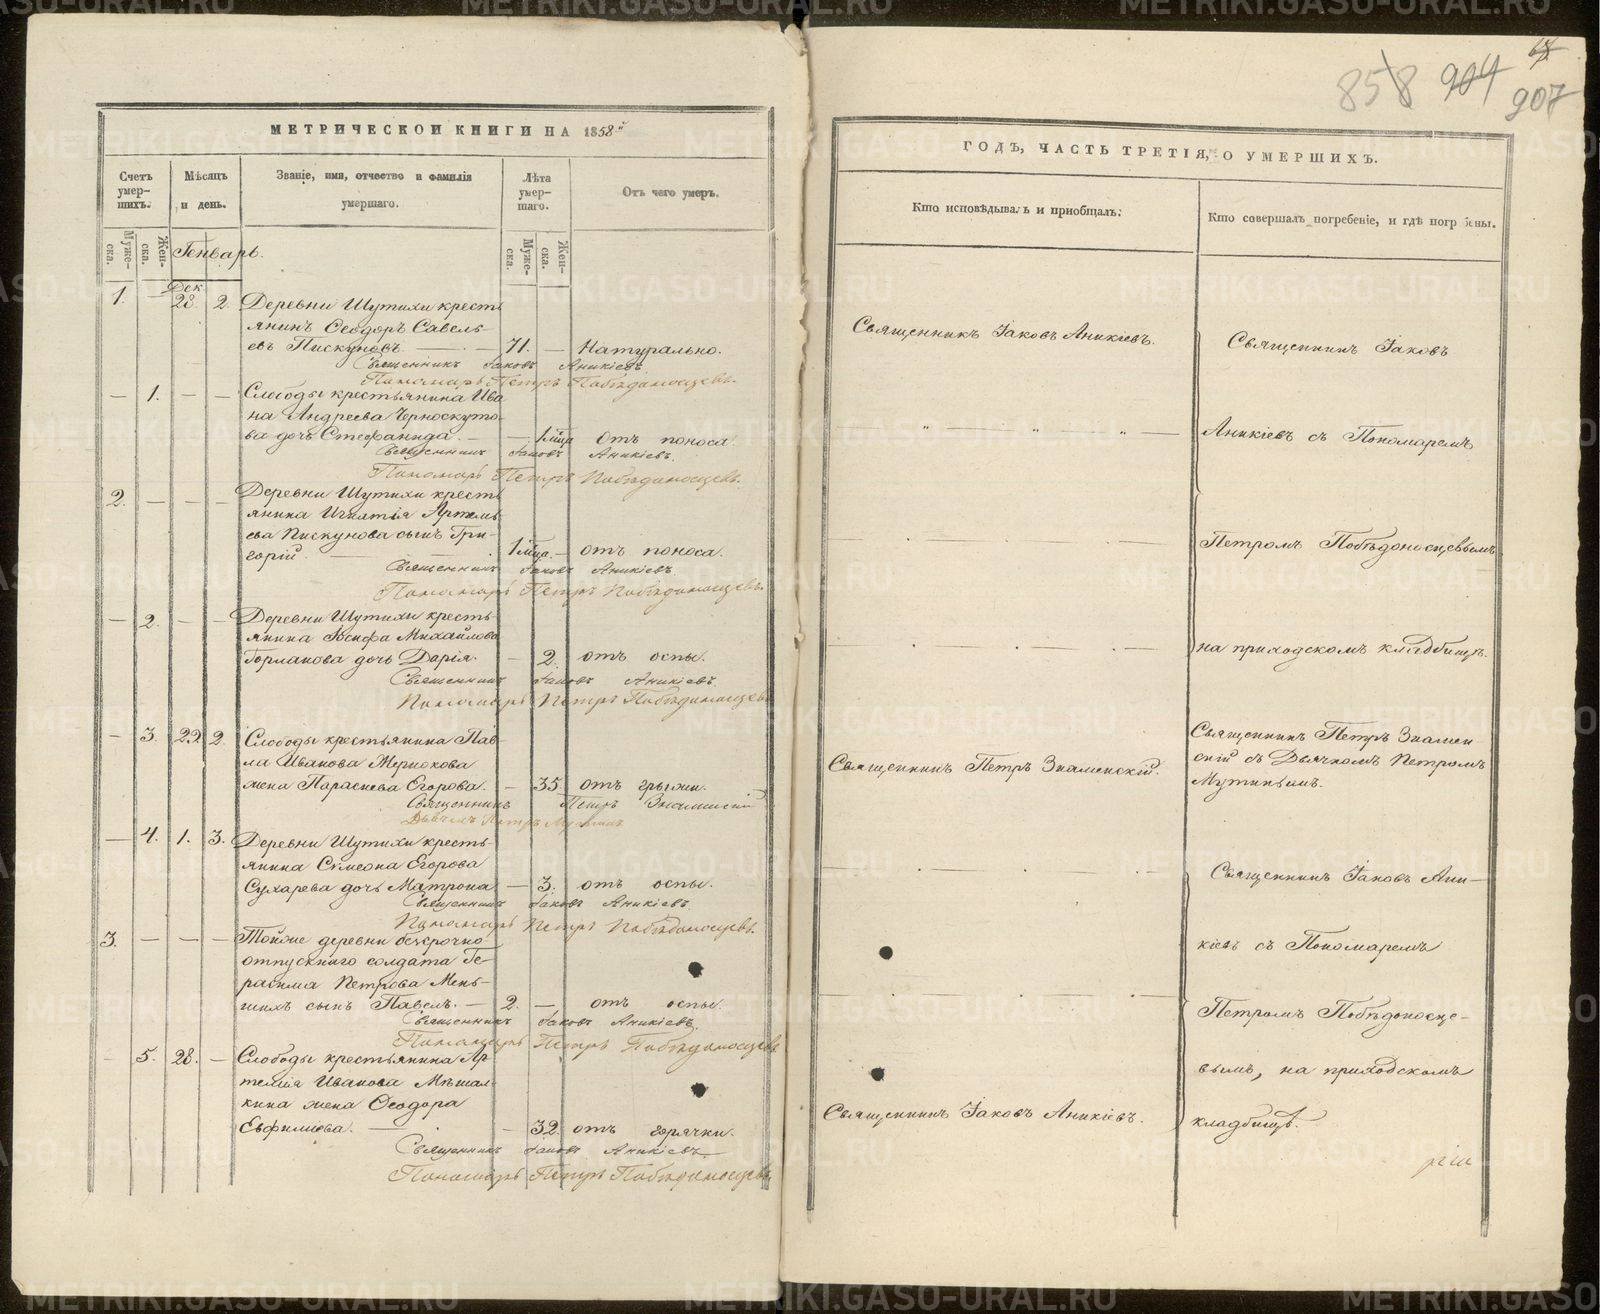 858 904 907
МЕТРИЧЕСКОЙ КНИГИ НА 1858й
Счетъ умер- шихъ.
Мѣсяцъ и день.
Званіе, имя, отчество и фамилія умершаго.
Лѣта умер- шаго.
Отъ чего умеръ.
Муже- ска.
Жен- ска.
Генварь.
Муже- ска.
Жен- ска.
Дек.
1. — 28 2. Деревни Шутихи кресть
янинъ Ѳеодоръ Савель-
евъ Пискуновъ — 71. — Натурально.
Священникъ Іаковъ Аникіевъ.
Пономарь Петръ Побѣдоносцевъ.
— 1. — — Слободы крестьянина Ива
на Андреева Черноскуто-
ва дочь Стефанида. — — 1 мца отъ поноса.
Священникъ Іаковъ Аникіевъ.
Пономарь Петръ Побѣдоносцевъ.
2. — — — Деревни Шутихи кресть
янина Игнатія Артемь-
ева Пискунова сынъ Гри-
горій — 1 мца. — отъ поноса.
Священникъ Іаковъ Аникіевъ.
Пономарь Петръ Побѣдоносцевъ.
— 2. — — Деревни Шутихи кресть-
янина Іосифа Михайлова
Горланова дочь Дарія. — 2. отъ оспы.
Священникъ Іаковъ Аникіевъ.
Пономарь Петръ Побѣдоносцевъ
— 3. 29. 2. Слободы крестьянина Пав-
ла Иванова Жернокова
жена Параскева Егорова. — 35. отъ грыжи.
Священникъ Петръ Знаменскій
Дьячекъ Петръ Мутинъ
— 4. 1. 3. Деревни Шутихи кресть-
янина Симеона Егорова
Сухарева дочь Матрона — 3. отъ оспы.
Священникъ Іаковъ Аникіевъ.
Пономарь Петръ Побѣдоносцевъ.
3. — — — Тойже деревни безсрочно-
отпускнаго солдата Ге-
расима Петрова Мень-
шихъ сынъ Павелъ. — 2. — отъ оспы
Священникъ Іаковъ Аникіевъ.
Пономарь Петръ Побѣдоносцевъ
— 5. 28. — Слободы крестьянина Ар-
темія Иванова Мѣшал-
кина жена Ѳеодора
Евфиміева. — — 32. отъ горячки.
Священникъ Іаковъ Аникіевъ.
Пономарь Петръ Побѣдоносцевъ.
ГОДЪ, ЧАСТЬ ТРЕТІЯ, О УМЕРШИХЪ.
Кто исповѣдывалъ и пріобщалъ:
Кто совершалъ погребеніе, и гдѣ погребены.
Священникъ Іаковъ Аникіевъ.
Священникъ Іаковъ
— „ „ „ —
Аникіевъ съ Пономаремъ
Петромъ Побѣдоносцевымъ
на приходскомъ кладбищѣ.
Священникъ Петръ Знаменскій.
Священникъ Петръ Знамен
скій съ Дьячкомъ Петромъ
Мутинымъ.
Священникъ Іаковъ Ани-
кіевъ съ Пономаремъ
Петромъ Побѣдоносце-
вымъ, на приходскомъ
Священникъ Іаковъ Аникіевъ.
кладбищѣ.
METRIKI.GASO-URAL.RU